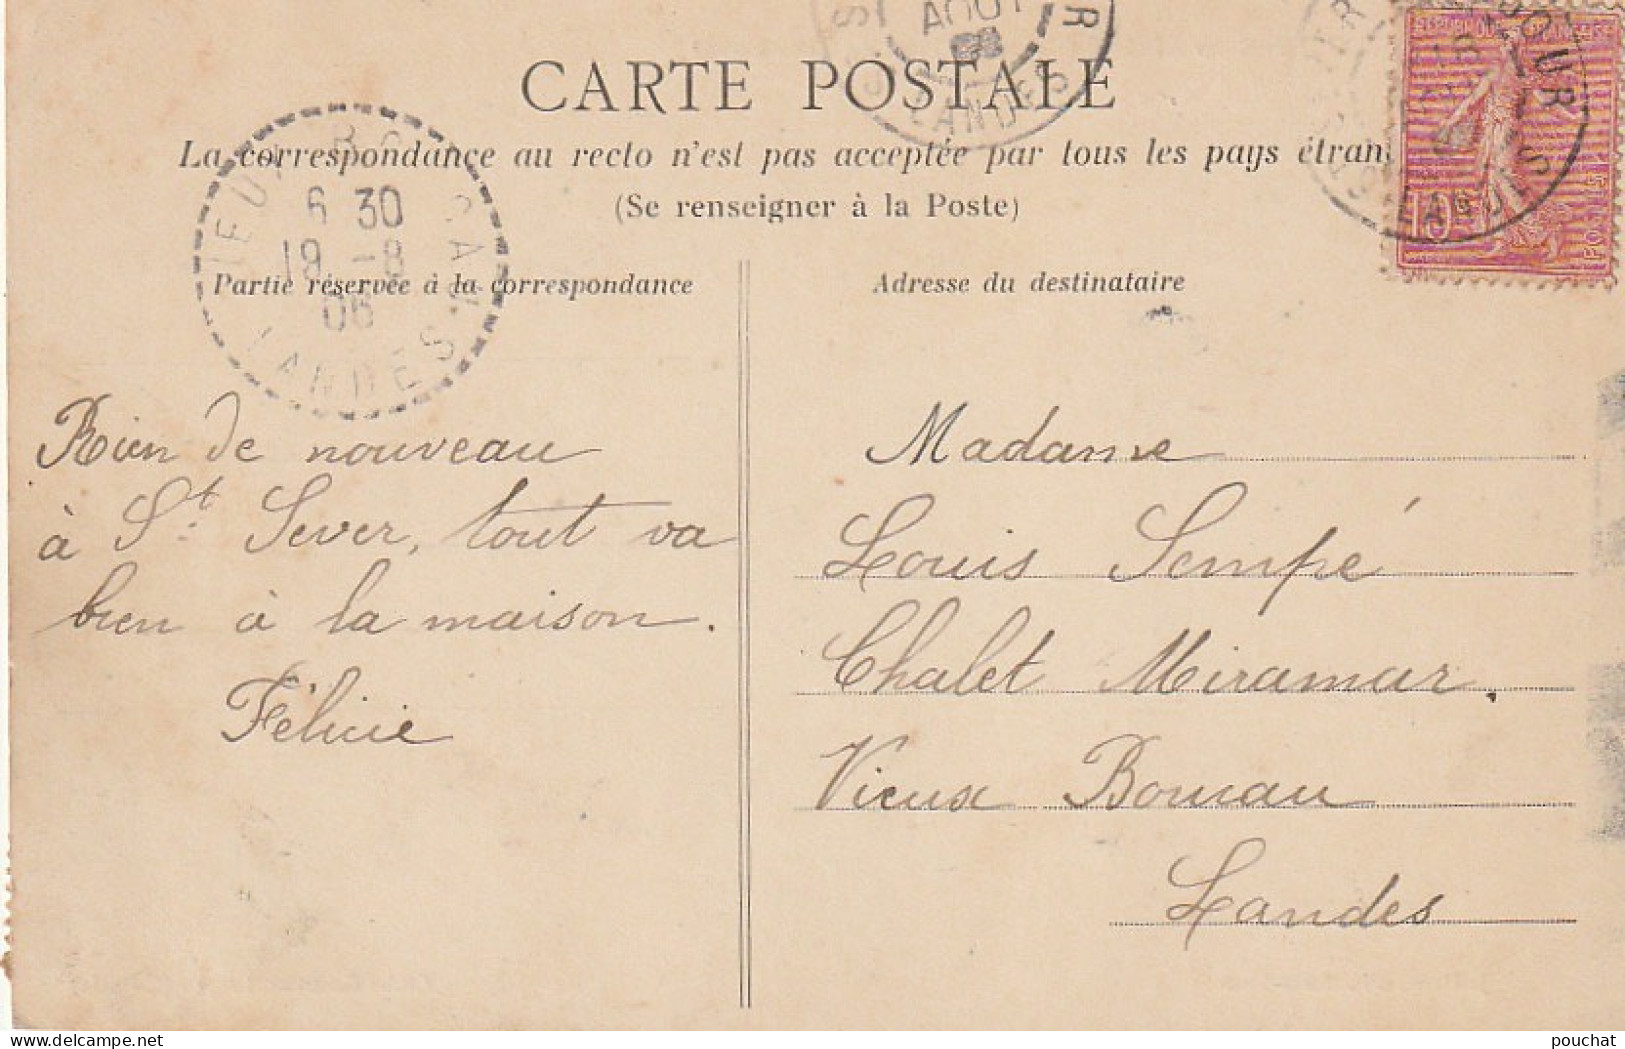 CARTE POSTALE
La correspondance au recto n'est pas acceptée par tous les pays étran
(Se renseigner à la Poste)
Partie réservée à la correspondance
Adresse du destinataire
AOUT
LANDES
RÉPUBLIQUE FRANÇAISE
10c
6 30
19 -8
06
LANDES
Rien de nouveau
à St. Sever, tout va
bien à la maison.
Félicie
Madame
Louis Sempé
Chalet Miramar.
Vieux Boucau
Landes
pouchat